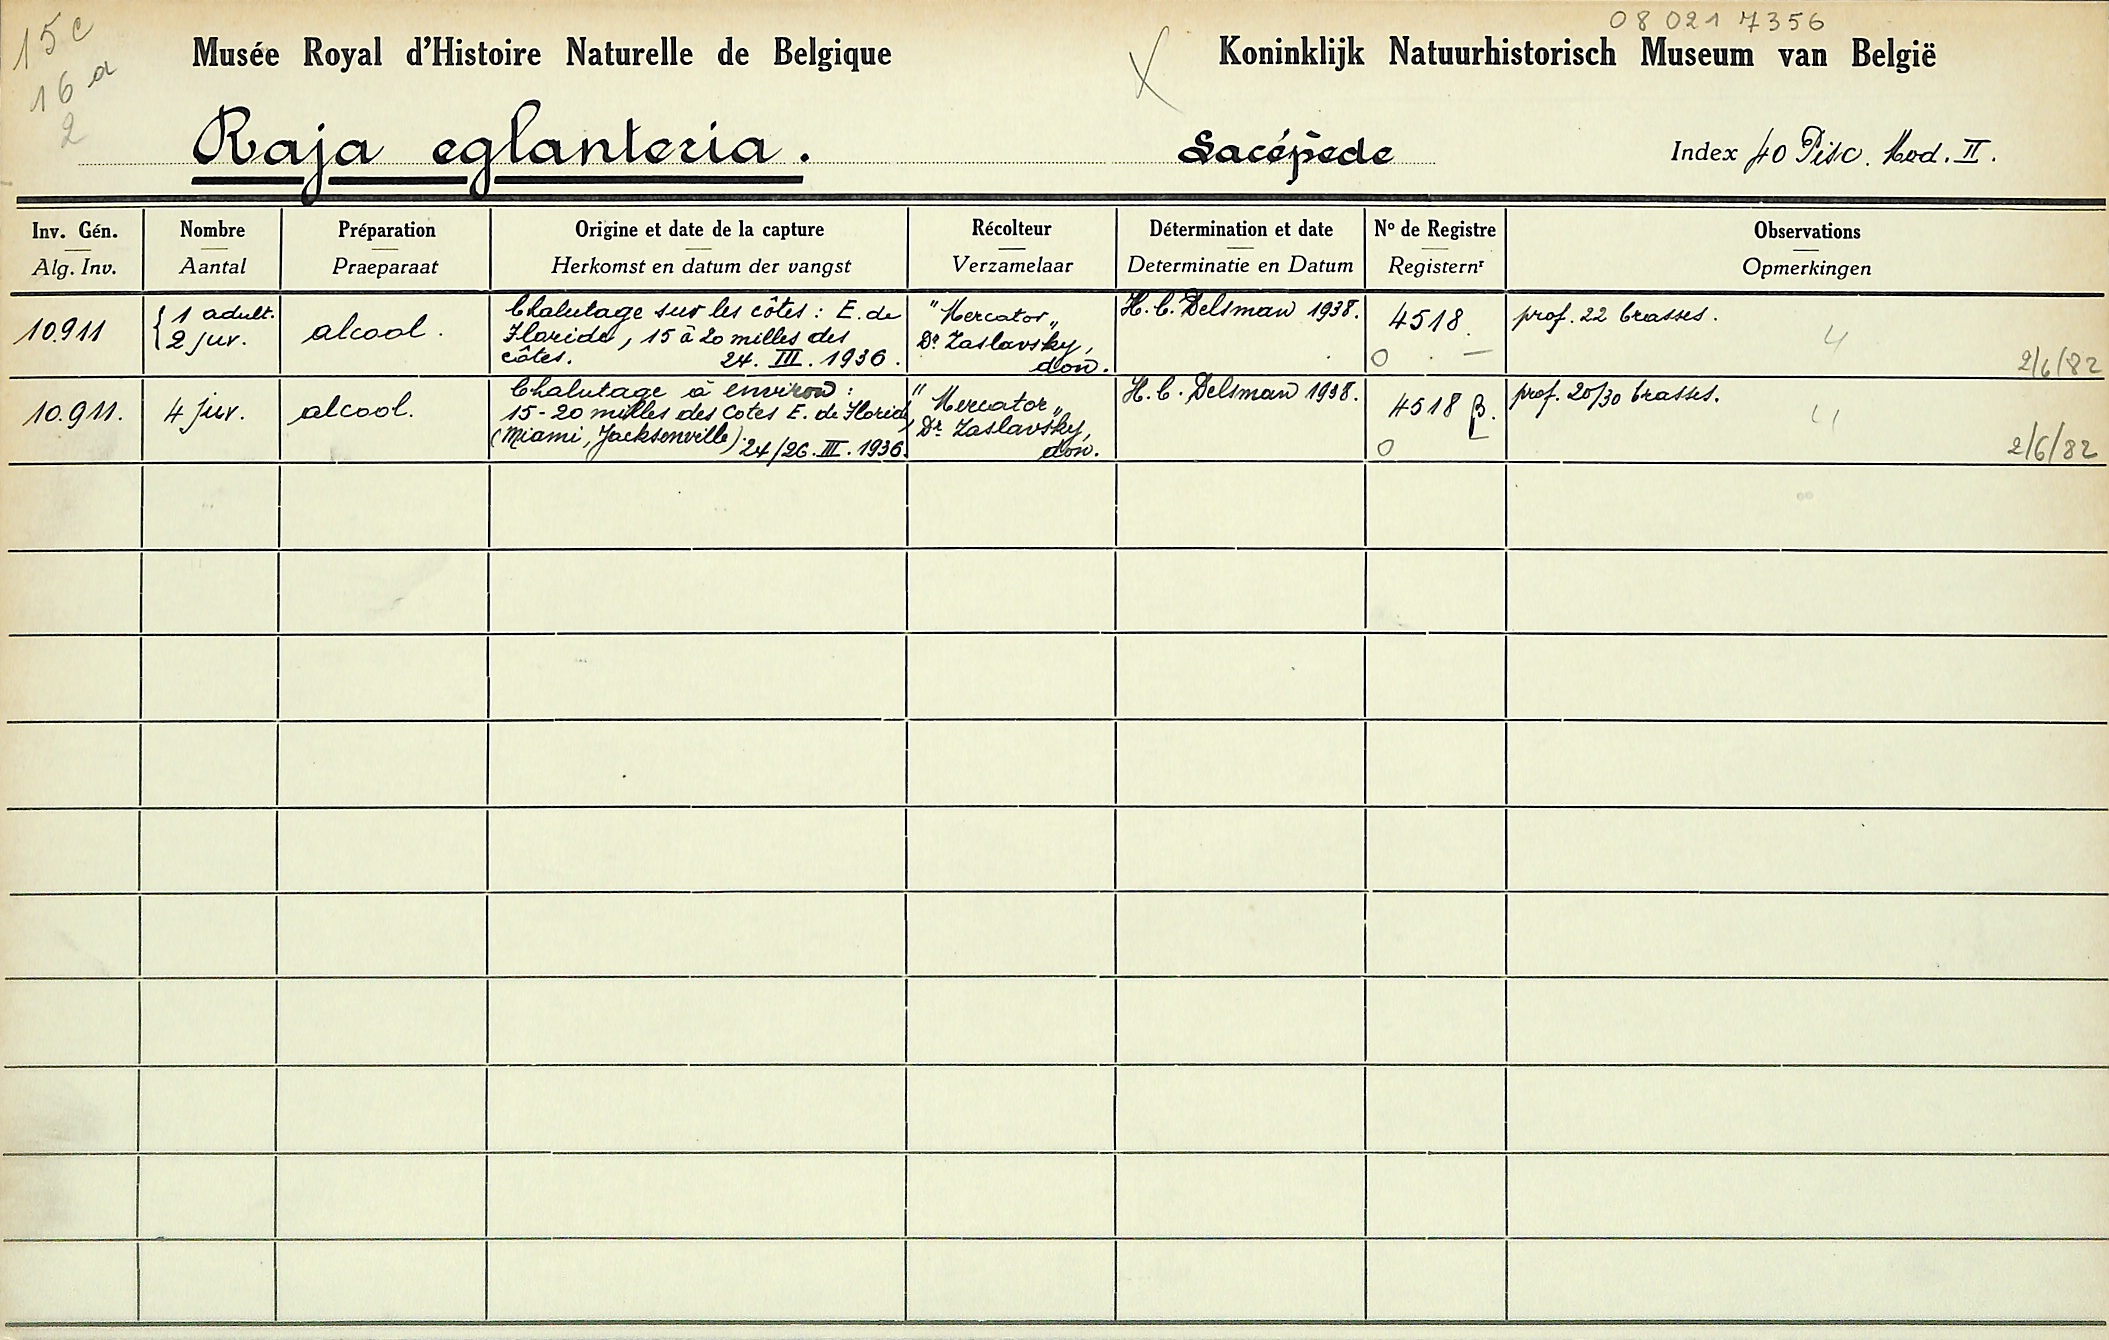 15 c
16 a
2
08 021 7356
Musée Royal d'Histoire Naturelle de Belgique X Koninklijk Natuurhistorisch Museum van België
Raja eglanteria. Lacépède Index 40 Pisc. Mod. II.
Inv. Gén. Nombre Préparation Origine et date de la capture Récolteur Détermination et date Nº de Registre Observations
Alg. Inv. Aantal Praeparaat Herkomst en datum der vangst Verzamelaar Determinatie en Datum Registernr Opmerkingen
10.911
{ 1 adult.
2 juv.
alcool.
Chalutage sur les côtes : E. de
Floride, 15 à 20 milles des
côtes. 24. III. 1936.
"Mercator„
Dr Zaslavsky,
don.
H. C. Delsman 1938.
4518
O . —
prof. 22 brasses.
4
2/6/82
10.911.
4 juv.
alcool.
Chalutage à environ :
15-20 milles des Côtes E. de Floride
(Miami, Jacksonville). 24/26. III. 1936.
"Mercator„
Dr Zaslavsky,
don.
H. C. Delsman 1938.
4518 β.
O
prof. 20/30 brasses.
4
2/6/82